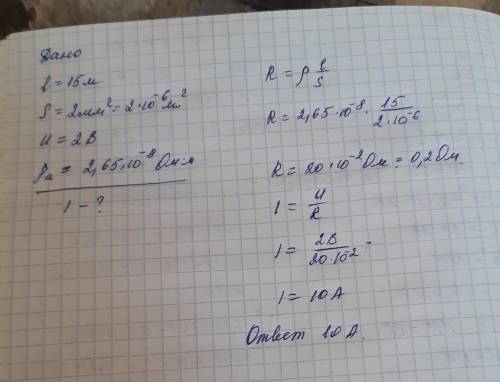 Дано
l = 15м
S = 2мм² = 2·10⁻⁶м²
U = 2В
ρа = 2,65·10⁻⁸ Ом·м
I - ?
R = ρ l/S
R = 2,65·10⁻⁸ · 15/2·10⁻⁶
R = 20·10⁻² Ом = 0,2 Ом.
I = U/R
I = 2В/20·10⁻² =
I = 10А
Ответ 10А.